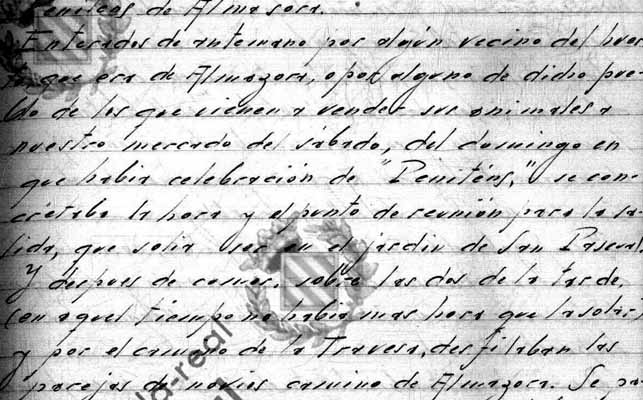 Peniteos de Almasora.
Enterados de antemano por algún vecino del barrio
que era de Almazora, o por alguno de dicho pue-
blo de los que vienen a vender sus animales a
nuestro mercado del sábado, del domingo en
que había celebración de "Peniténs," se con-
cretaba la hora y el punto de reunión para la sa-
lida, que solía ser en el jardín de San Pascual
Y después de comer, sobre las dos de la tarde,
(en aquel tiempo no había mas hora que la solar)
y por el camino de la Travesa, desfilaban las
parejas de novios camino de Almazora. Se pa
la-real